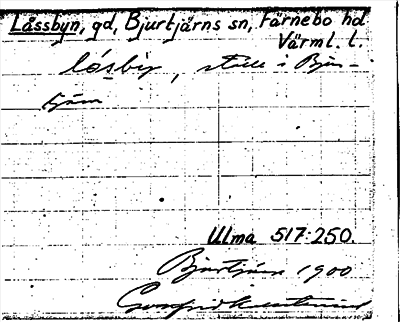 Låssbyn, gd, Bjurtjärns sn, Färnebo hd
Värml. l.
låsby, ställe i Bjur-
tjärn
Ulma 517:250.
Bjurtjärn 1900